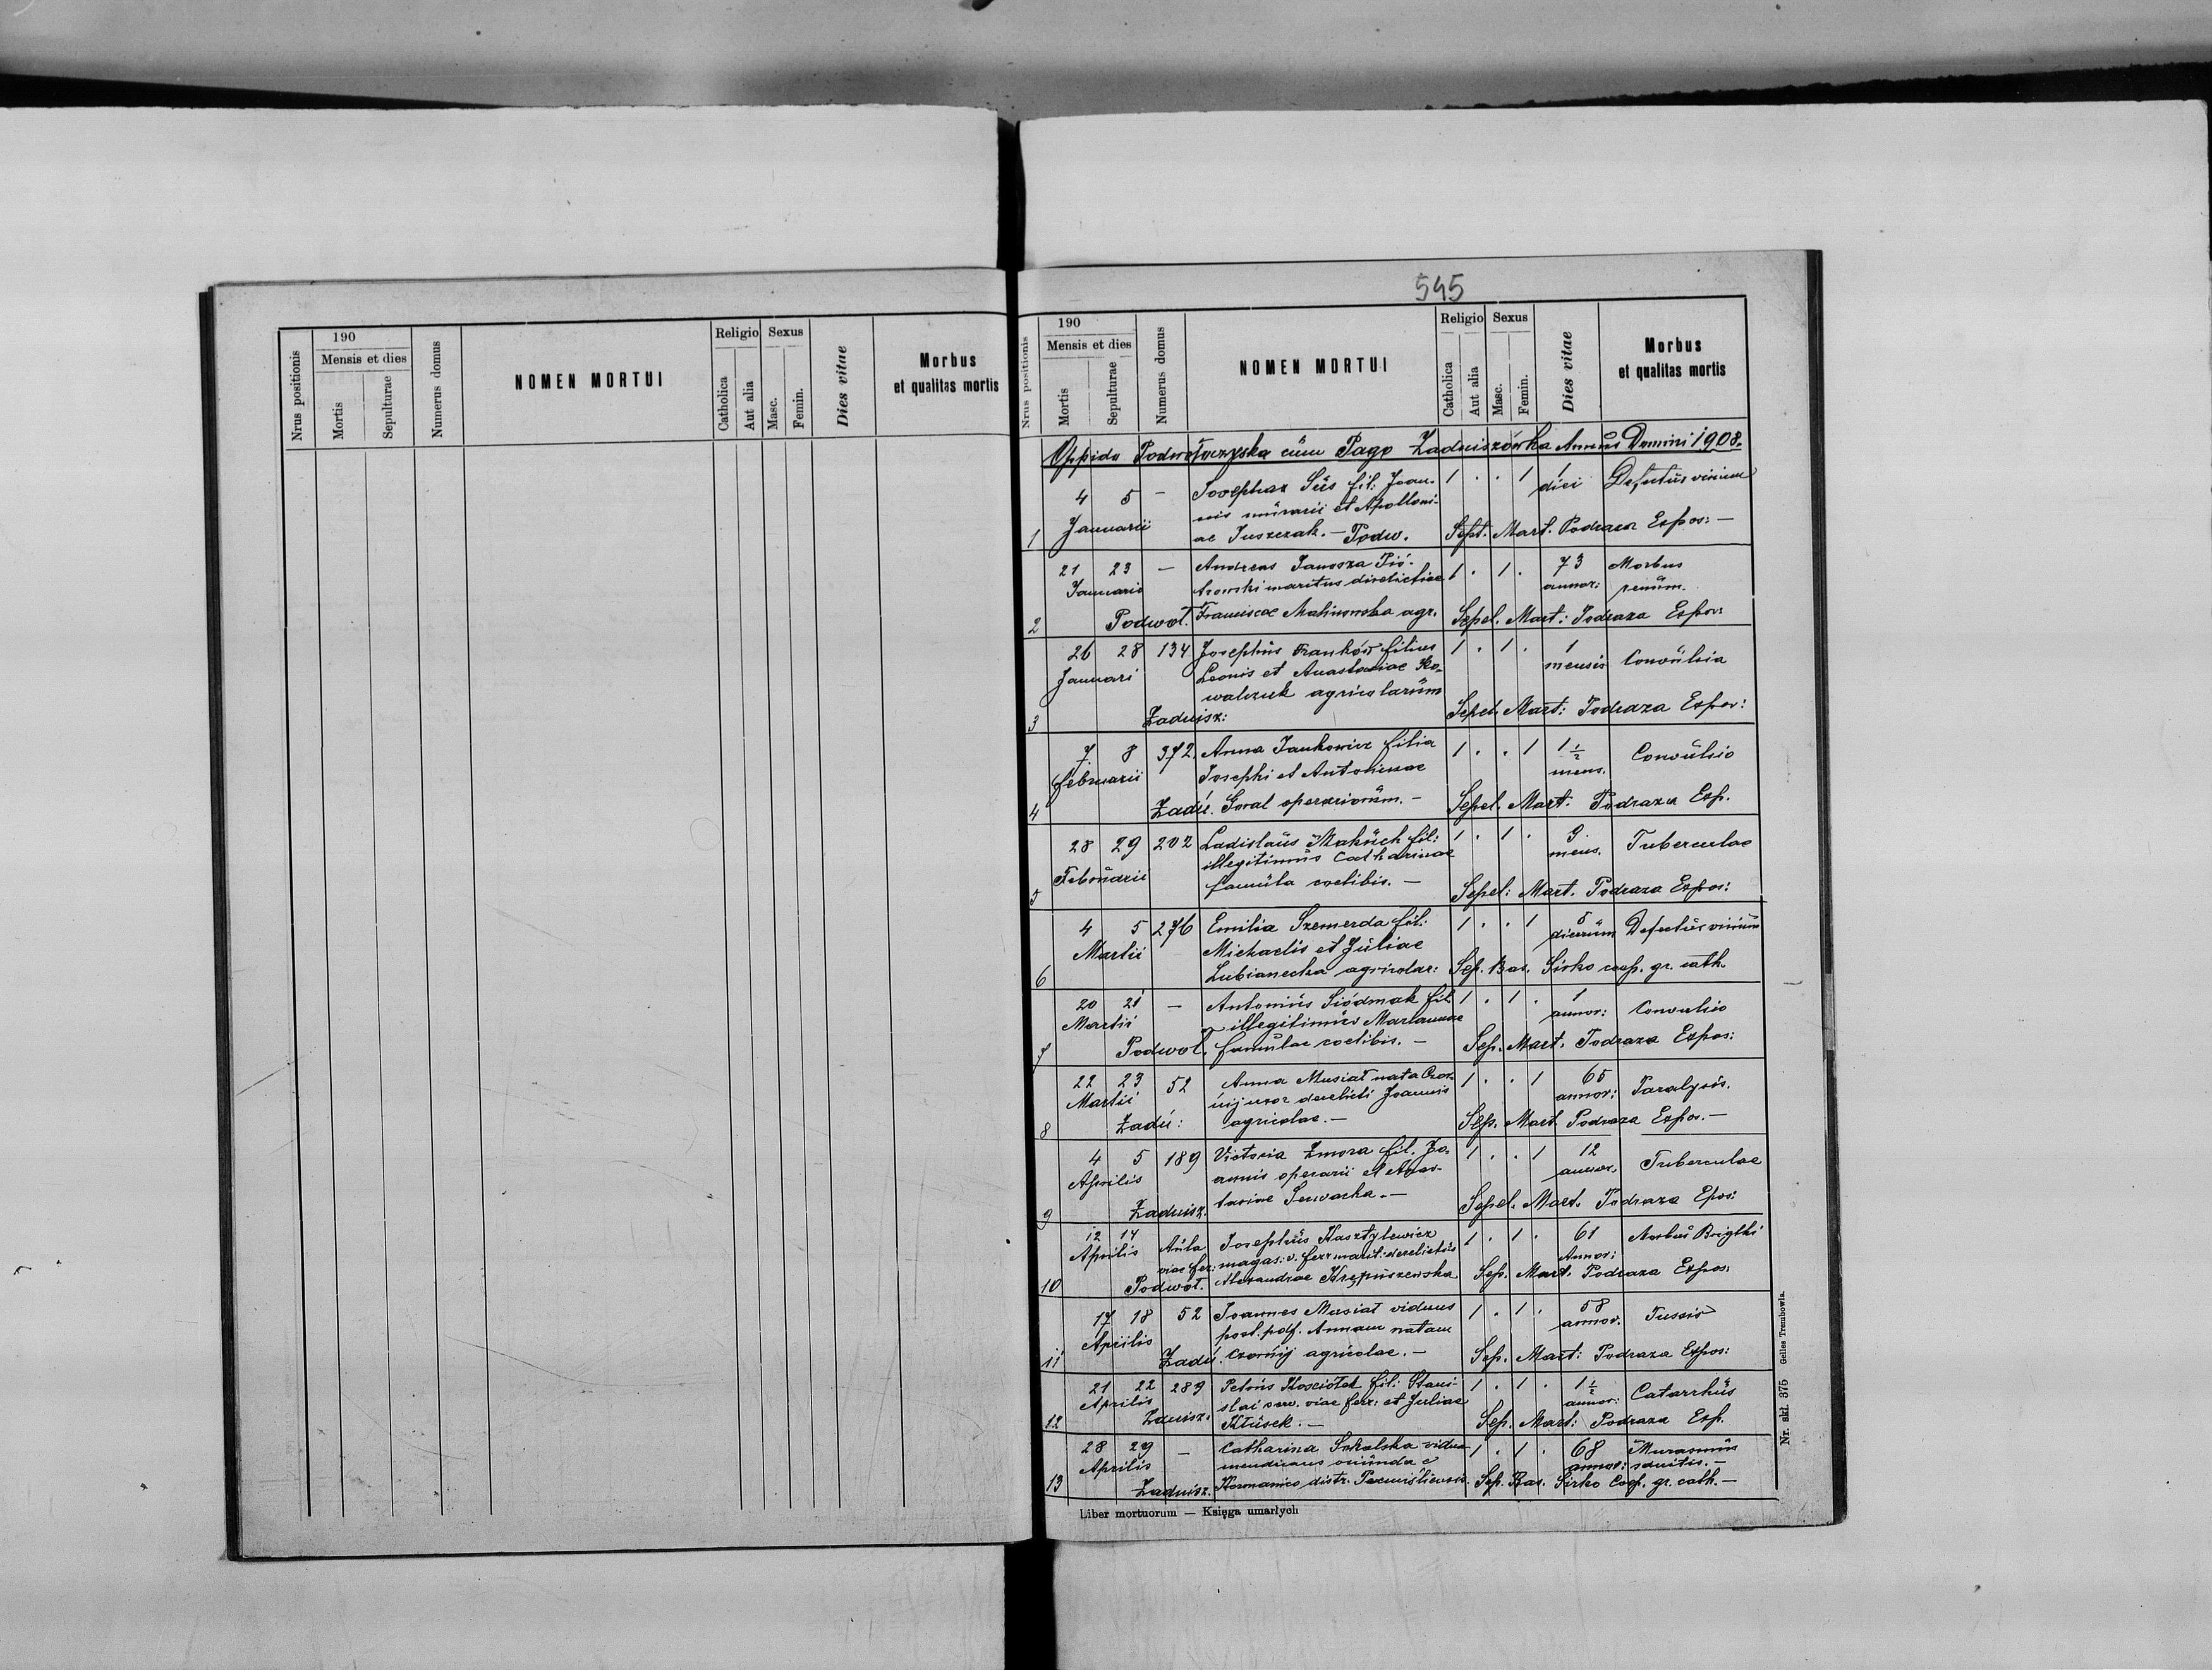 190
Mensis et dies
Nrus positionis
Mortis
Sepulturae
Numerus domus
NOMEN MORTUI
Religio
Sexus
Catholica
Aut alia
Masc.
Femin.
Dies vitae
Morbus
et qualitas mortis
545
190
Mensis et dies
Nrus positionis
Mortis
Sepulturae
Numerus domus
NOMEN MORTUI
Religio
Sexus
Catholica
Aut alia
Masc.
Femin.
Dies vitae
Morbus
et qualitas mortis
Oppido Podwołoczyska cum Pago Zadniszówka Annus Domini 1908.
4 5 — fil: Joan- 1 . . 1 1 Defectus virium
nis murarii et Apolloni- diei
1 Januarii ae Juszczak. — Podw. Sept. Mart. Podraza Expos: —
21 23 — Andreas Janosza Pió- 1 . 1 . 73 Morbus
Januarii trowski maritus derelictae annor: renum.
2 Podwoł. Franciscae Malinowska agr. Sepel. Mart: Podraza Expos:
26 28 134 Josephus Franków filius 1 . 1 . 1
Januari Leonis et Anastasiae Ko- mensis Convulsio
walczuk agricolarum
3 Zadnisz: Sepel. Mart: Podraza Expos:
7. 8 372. Anna Jankowicz filia 1 . . 1 1 1/2 Convulsio
Februarii Josephi et Antoninae mens.
4 Zadń. Goral operariorum. — Sepel. Mart. Podraza Exp.
28 29 202 Ladislaus Makuch fil: 1 . 1 . 9 Tuberculae
illegitimus Catharinae mens.
Februarii famula coelibis. —
5 Sepel: Mart. Podraza Expos:
4 5 276 Emilia Szemerda fil: 1 . . 1 8 Defectus virium
Martii Michaelis et Juliae dierum
6 Lubianecka agricolar: Sep. Bas. Sirko coop. gr. cath.
20 21 — Antonius Siódmak fil 1 . 1 . 1 Convulsio
Martii illegitimus Mariannae annor:
7 Podwoł. famulae coelibis. — Sep. Mart. Podraza Expos:
22 23 52 Anna Musiał nata Czor- 1 . . 1 65 Paralysis.
Martii nij uxor derelicti Joannis annor:
8 Zadń: agricolae. — Sep. Mart. Podraza Expos. —
4 5 189 Victoria Zmora fil. Jo- 1 . . 1 12 Tuberculae
Aprilis annis operarii et Anas- annor.
9 Zadnisz. tasiae Serwacka. — Sepel. Mart. Podraza Epos:
12 14 Aula Josephus Kasztylewicz 1 . 1 . 61 Morbus Brigthi
Aprilis viae fer: magas: v. ferr marit: derelictus Annor:
10 Podwoł. Alexandrae Sep. Mart. Podraza Expos:
17 18 52 Joannes Musiał viduus 1 . 1 . 58 Tussis
Aprilis post. pdf. Annam natam annor.
11 Zadń. Czornij agricolae. — Sep. Mart: Podraza Expos:
21 22 289 Petrus Kosciołek fil: Stani- 1 . 1 . 1 1/2 Catarrhus
Aprilis slai serv. viae ferr: et Juliae annor:
12 Zdnisz. Kłusek. — Sep. Mart: Podraza Exp.
28 29 — Catharina Sokalska vidua 1 . 1 . 68 Marasmus
Aprilis mendicans oriunda e annor: senilis. —
13 Zadnisz. distr. Sep. Bas. Sirko Coop. gr. cath. —
Liber mortuorum — Księga umarłych
Nr. skł. 375 Gelles Trembowla.